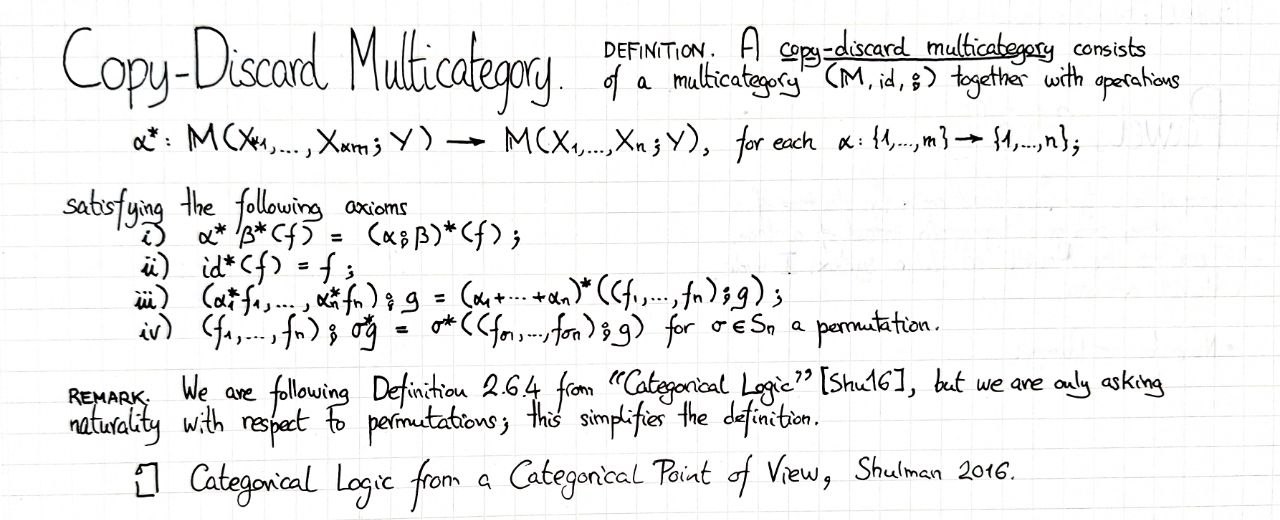 Copy-Discard Multicategory. DEFINITION. A copy-discard multicategory consists
of a multicategory (M, id, ⨟) together with operations
α*: M(Xα1,..., Xαm; Y) → M(X1,...,Xn; Y), for each α: {1,...,m} → {1,...,n};
satisfying the following axioms
i) α* β*(f) = (α⨟β)*(f);
ii) id*(f) = f;
iii) (α1*f1,..., αn*fn)⨟g = (α1+···+αn)*((f1,...,fn)⨟g);
iv) (f1,...,fn)⨟σ*g = σ*((fσ1,...,fσn)⨟g) for σ∈Sn a permutation.
REMARK. We are following Definition 2.6.4 from “Categorical Logic” [Shu16], but we are only asking
naturality with respect to permutations; this simplifies the definition.
[] Categorical Logic from a Categorical Point of View, Shulman 2016.